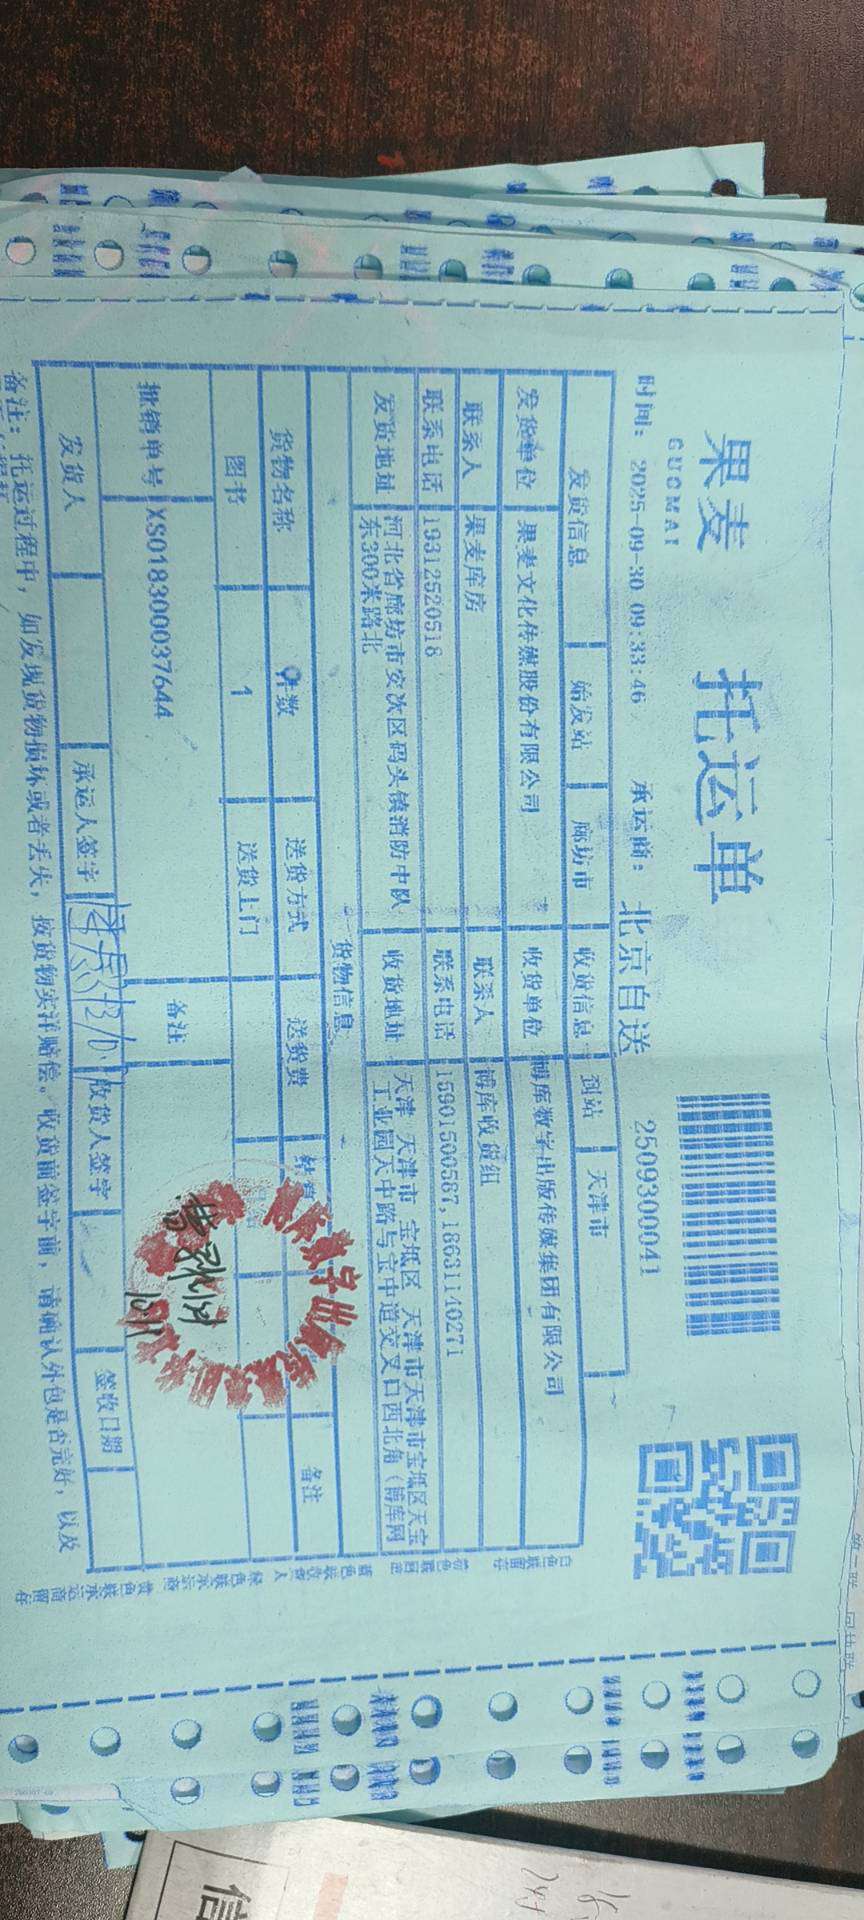 果麦
GUOMAI
托运单
时间：2025-09-30 09:33:46 承运商：北京自送 250930041
发货信息 始发站 廊坊市 收货信息 到站 天津市
发货单位 果麦文化传媒股份有限公司 收货单位 博库数字出版传媒集团有限公司
联系人 果麦库房 联系人 博库收货组
联系电话 19312520518 联系电话 15901500587,18631140271
发货地址 河北省廊坊市安次区码头镇消防中队东300米路北 收货地址 天津 天津市 宝坻区 天津市天津市宝坻区天宝工业园天中路与宝中道交叉口西北角（博库网
货物信息
货物名称 件数 送货方式 送货费 备注
图书 1 送货上门
批销单号 XS018300037644 备注
发货人 承运人签字 收货人签字 签收日期
备注：托运过程中，如发现货物损坏或者丢失，按货物实洋赔偿。收货前签字前，请确认外包是否完好，以及
白色联留存
绿色联承运商
黄色联承运商留存
10.11
信